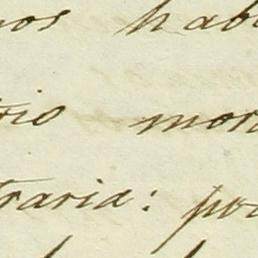 nos hab
rio mor
traria: po